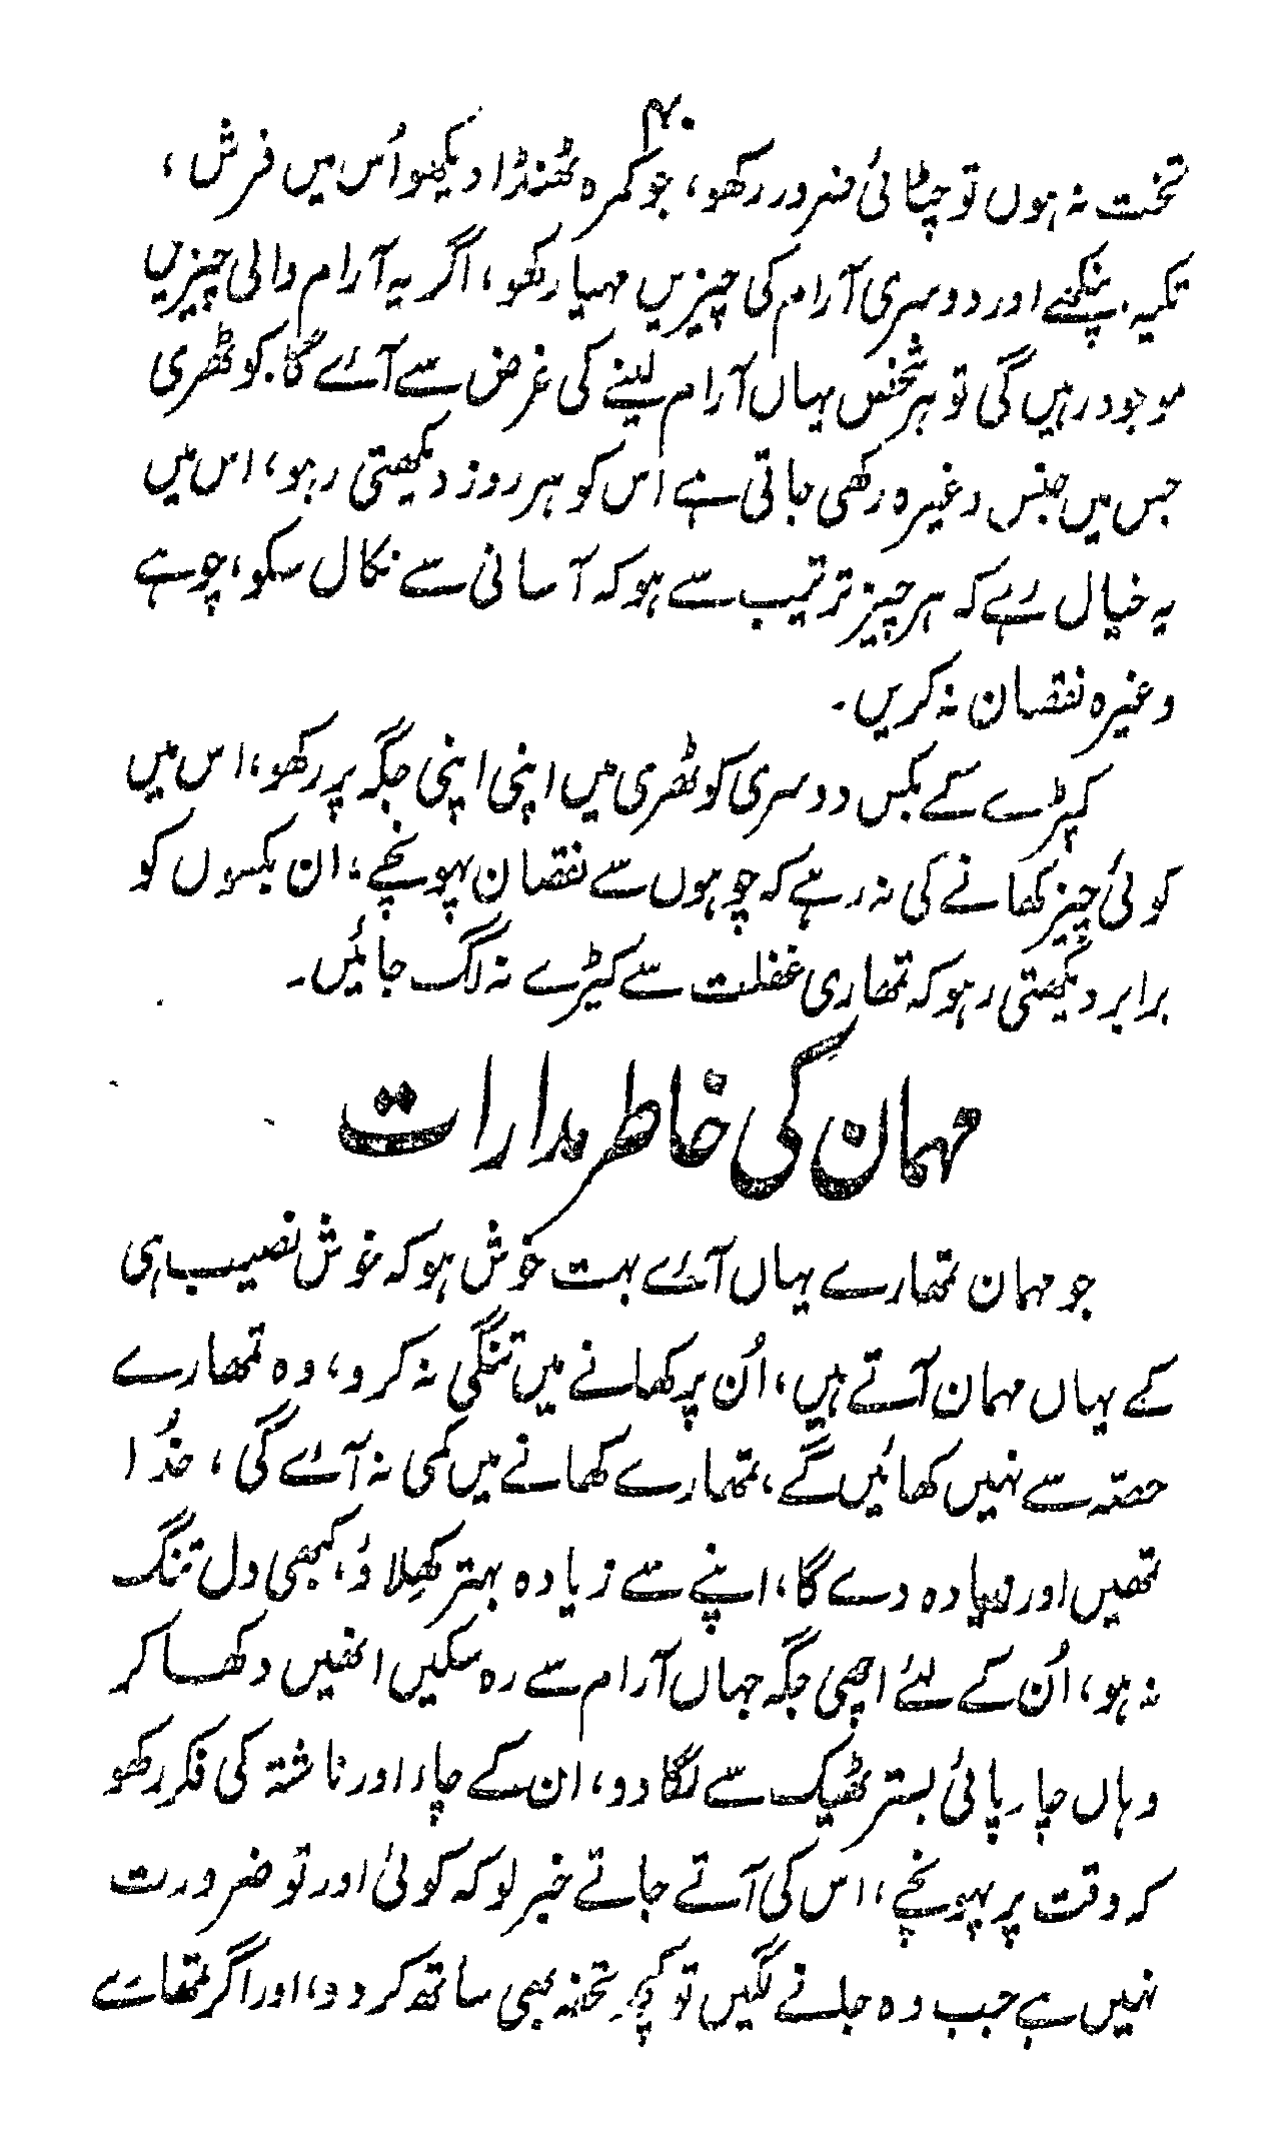 ۴۰
تخت نہ ہوں تو چٹائی ضرور رکھو، جو کمرہ ٹھنڈا دیکھو اُس میں فرش،
تکیہ۔ پنکھے اور دوسری آرام کی چیزیں مہیا رکھو، اگر یہ آرام والی چیزیں
موجود رہیں گی تو ہر شخص یہاں آرام لینے کی غرض سے آئے گا۔ کوٹھری
جس میں جنس وغیرہ رکھی جاتی ہے اس کو ہر روز دیکھتی رہو، اس میں
یہ خیال رہے کہ ہر چیز ترتیب سے ہو کہ آسانی سے نکال سکو، چوہے
وغیرہ نقصان نہ کریں۔
کپڑے کے بکس دوسری کوٹھری میں اپنی اپنی جگہ پر رکھو، اس میں
کوئی چیز کھانے کی نہ رہے کہ چوہوں سے نقصان پہونچے، ان بکسوں کو
برابر دیکھتی رہو کہ تمھاری غفلت سے کیڑے نہ لگ جائیں۔
مہمان کی خاطر مدارات
جو مہمان تمھارے یہاں آئے بہت خوش ہو کہ خوش نصیب ہی
کے یہاں مہمان آتے ہیں، اُن پر کھانے میں تنگی نہ کرو، وہ تمھارے
حصّہ سے نہیں کھائیں گے، تمہارے کھانے میں کمی نہ آئے گی، خُدا
تمھیں اور زیادہ دے گا، اپنے سے زیادہ بہتر کھِلاؤ، کبھی دل تنگ
نہ ہو، اُن کے لئے اچھی جگہ جہاں آرام سے رہ سکیں انھیں دکھا کر
وہاں چارپائی بستر ٹھیک سے لگا دو، ان کے چاء اور ناشتہ کی فکر رکھو
کہ وقت پر پہونچے، اس کی آتے جاتے خبر لو کہ کوئی اور تو ضرورت
نہیں ہے جب وہ جانے لگیں تو کچھ تحفہ بھی ساتھ کر دو، اور اگر تمھارے